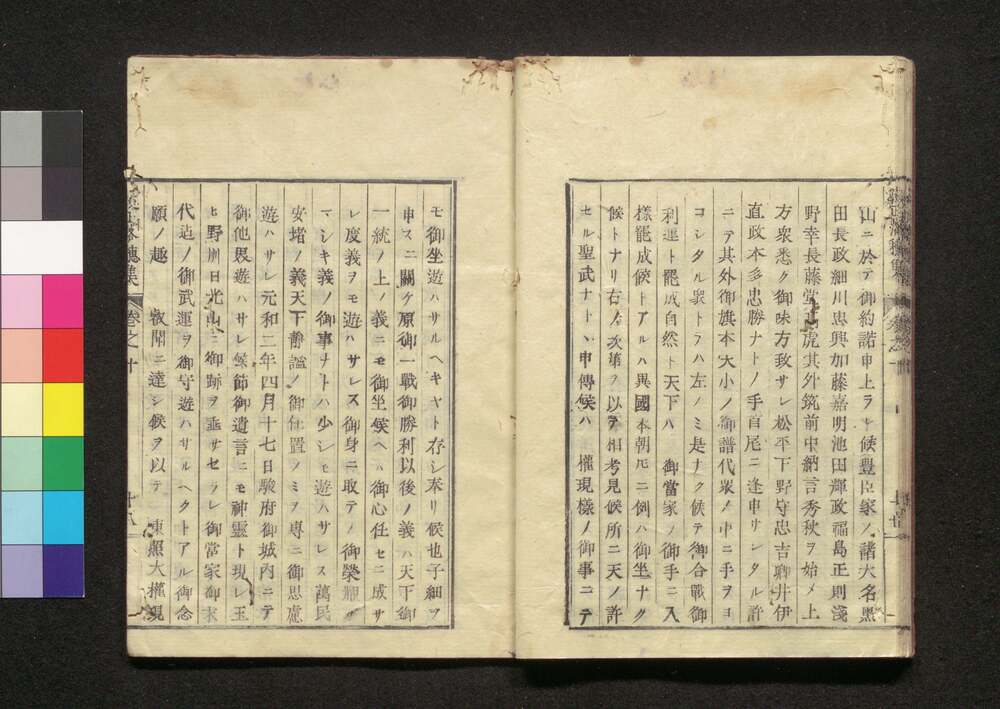 山ニ於テ御約諾申上ラレ候豊臣家ノ諸大名黒
田長政細川忠興加藤嘉明池田輝政福島正則淺
野幸長藤堂高虎其外筑前中納言秀秋ヲ始メ上
方衆悉ク御味方致サレ松平下野守忠吉卿井伊
直政本多忠勝ナトノ手首尾ニ逢申サレタル許
ニテ其外御旗本大小ノ御譜代衆ノ中ニ手ヲヨ
コシタル衆トテハ左ノミ是ナク候テ御合戰御
利運ト罷成自然ト天下ハ 御當家ノ御手ニ入
樣罷成候トアルハ異國本朝𪜈ニ例ハ御坐ナク
候トナリ右ノ次第ヲ以テ相考見候所ニ天ノ許
セル聖武ナトヽ申傳候ハ 權現樣ノ御事ニテ
モ御坐遊ハサルヘキヤト存シ奉リ候也子細ヲ
申スニ關ケ原御一戰御勝利以後ノ義ハ天下御
一統ノ上ノ義ニモ御坐候ヘハ御心任セニ成サ
レ度義ヲモ遊ハサレス御身ニ取テノ御榮耀カ
マシキ義ノ御事ナトハ少シモ遊ハサレス萬民
安堵ノ義天下靜謐ノ御仕置ノミヲ專ニ御思慮
遊ハサレ元和二年四月十七日駿府御城內ニテ
御他界遊ハサレ候節御遺言ニモ神靈ト現レ玉
ヒ野州日光山ニ御跡ヲ垂サセラレ御當家御末
代迠ノ御武運ヲ御守遊ハサルヘクトアル御念
願ノ趣 敬聞ニ達シ候ヲ以テ 東照大權現
卷之十